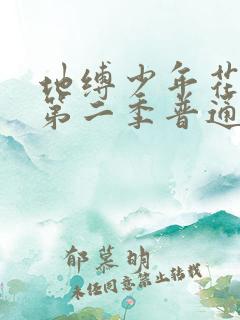 地缚少年花
第二季普通
郁慕明
未经同意禁止转载